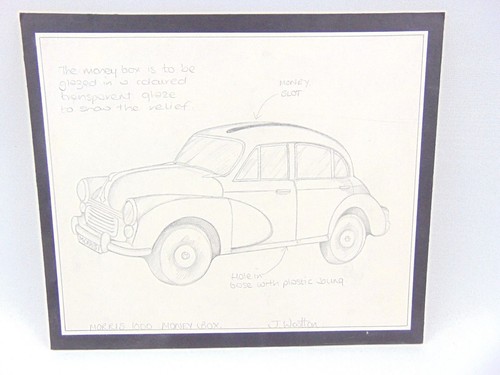 The money box is to be
glazed in a coloured
transparent glaze
to show the relief.
MONEY
SLOT
Hole in
base with plastic bung
MORRIS 1000 MONEY BOX.